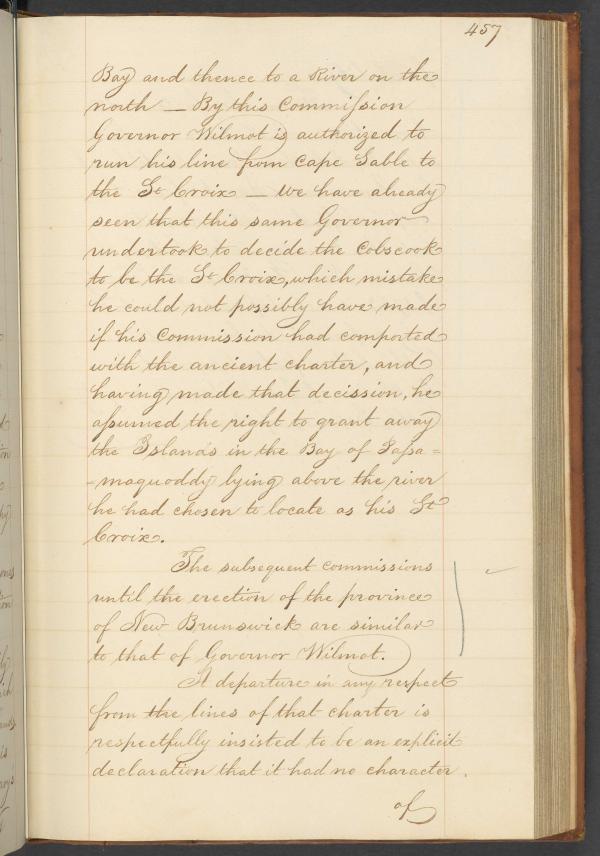 457
Bay and thence to a River on the
north — By this Commission
Governor Wilmot is authorized to
run his line from Cape Sable to
the St Croix — We have already
seen that this same Governor
undertook to decide the Cobscook
to be the St Croix, which mistake
he could not possibly have made
if his Commission had comported
with the ancient charter, and
having made that decission, he
assumed the right to grant away
the Islands in the Bay of Passa=
=maquoddy lying above the river
he had chosen to locate as his St
Croix.
The subsequent commissions
until the erection of the province
of New Brunswick are similar
to that of Governor Wilmot.
A departure in any respect
from the lines of that charter is
respectfully insisted to be an explicit
declaration that it had no character
of